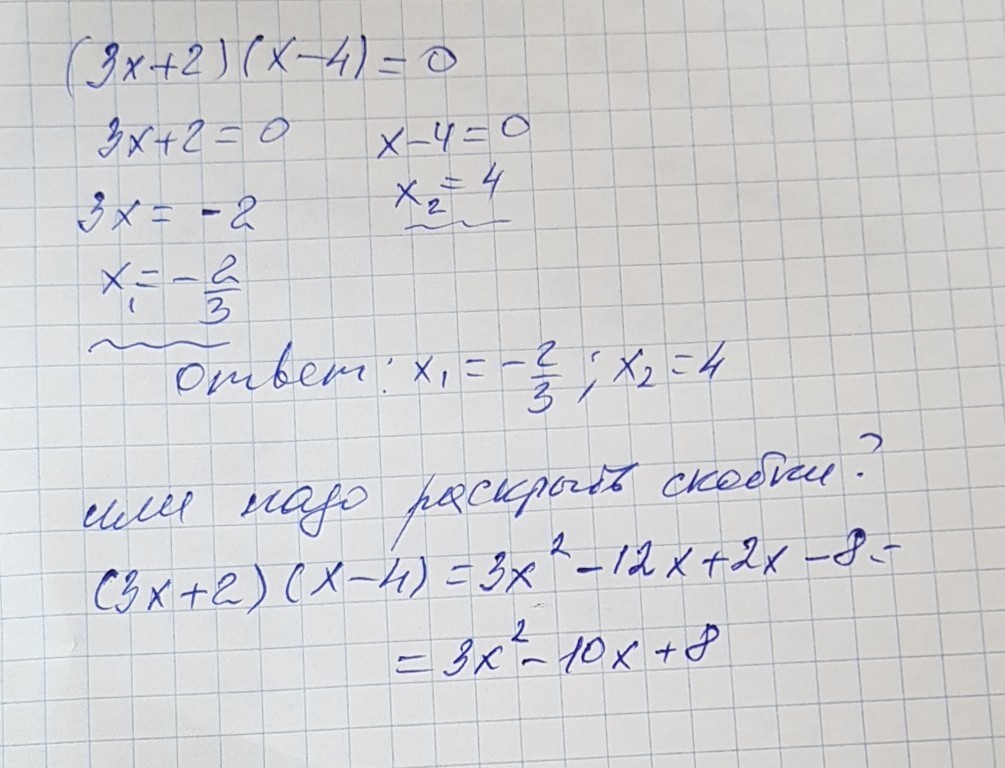 (3x+2)(x-4)=0
3x+2=0 x-4=0
3x=-2 x₂=4
x₁=-2/3
ответ: x₁=-2/3; x₂=4
или надо раскрыть скобки?
(3x+2)(x-4)=3x²-12x+2x-8=
=3x²-10x+8